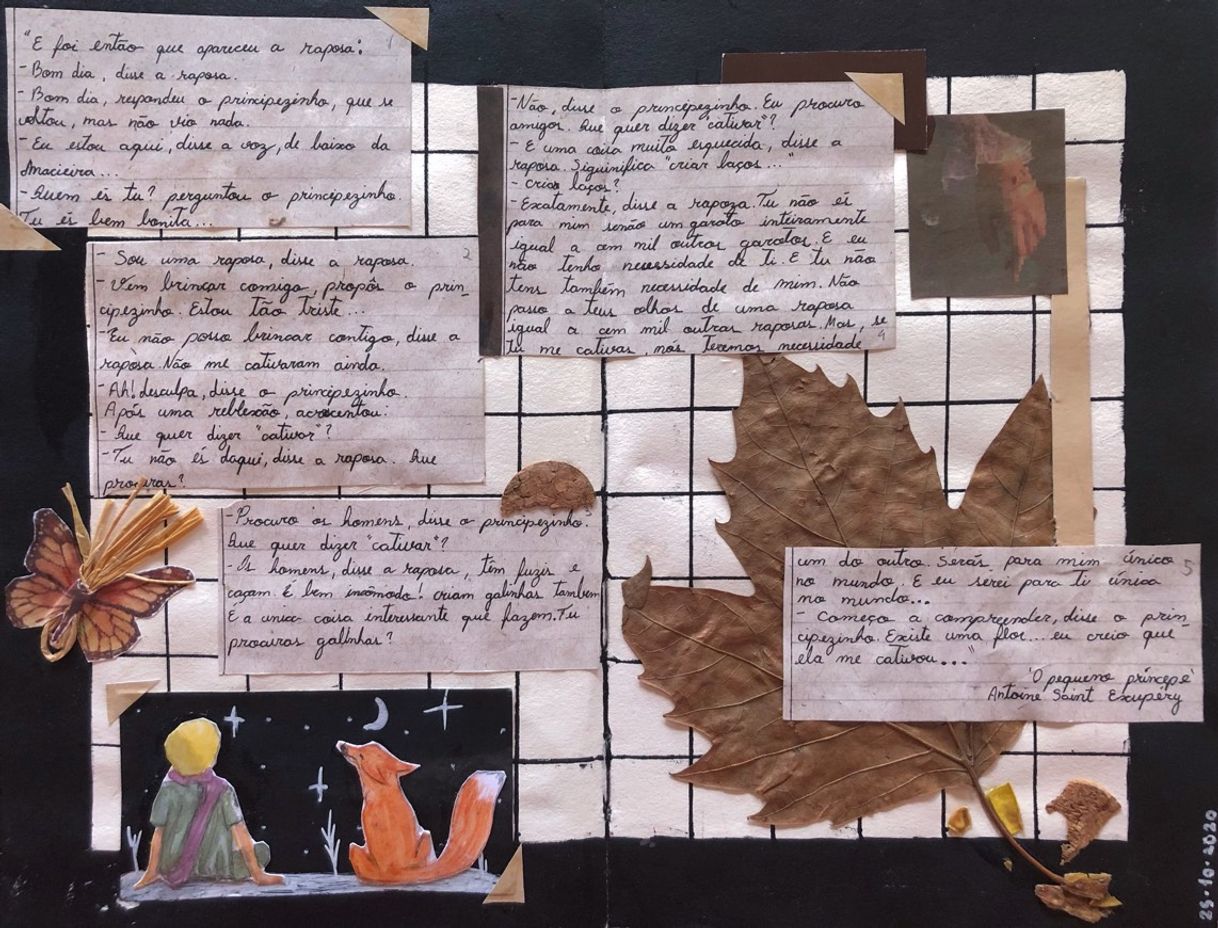 "E foi então que apareceu a raposa: 1
- Bom dia, disse a raposa.
- Bom dia, respondeu o principezinho, que se
voltou, mas não viu nada.
- Eu estou aqui, disse a voz, de baixo da
Amacieira...
- Quem és tu? perguntou o principezinho.
Tu és bem bonita...
- Sou uma raposa, disse a raposa. 2
- Vem brincar comigo, propôs o prin_
cipezinho. Estou tão triste...
- Eu não posso brincar contigo, disse a
raposa. Não me cativaram ainda.
- Ah! desculpa, disse o principezinho.
Após uma reblexão, acrecentou:
- Que quer dizer "cativar"?
- Tu não és daqui, disse a raposa. Que
procuras?
- Procuro os homens, disse o principezinho. 3
Que quer dizer "cativar"?
- Os homens, disse a raposa, têm fuzis e
caçam. É bem incômodo! criam galinhas também
É a unica coisa interessante que fazem. Tu
procuras galinhas?
- Não, disse o princepezinho. Eu procuro
amigos. Que quer dizer "cativar"?
- É uma coisa muito esquecida, disse a
raposa. Siguinifica "criar laços..."
- criar laços?
- Exatamente, disse a rapoza. Tu não és
para mim senão um garoto inteiramente
igual a cem mil outros garotos. E eu
não tenho necessidade de ti. E tu não
tens também necessidade de mim. Não
passo a teus olhos de uma raposa
igual a cem mil outras raposas. Mas, se
tu me cativas, nós teremos necessidade 4
um do outro. Serás para mim único 5
no mundo. E eu serei para ti única
no mundo...
- Começo a compreender, disse o prin_
cipezinho. Existe uma flor... eu creio que
ela me cativou..."
'O pequeno príncepe'
Antoine Saint Exupéry
25.10.2020